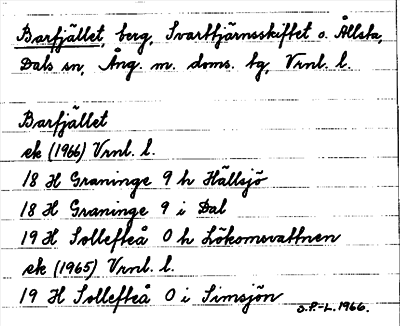 Barfjället, berg, Svarttjärnsskiftet o. Ållsta,
Dals sn, Ång. m. doms. tg, Vrnl. l.
Barfjället
ek (1966) Vrnl. l.
18 H Graninge 9 h Hällsjö
18 H Graninge 9 i Dal
19 H Sollefteå 0 h Lökomsvattnen
ek (1965) Vrnl. l.
19 H Sollefteå 0 i Simsjön
S.P.-L. 1966.